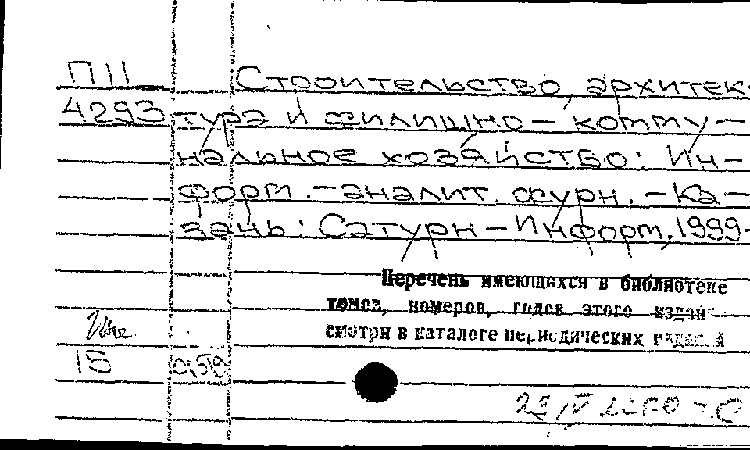 П11
4293
Строительство, архитек-
тура и жилищно-комму-
нальное хозяйство: Ин-
форм.-аналит. журн. - Ка-
зань: Сатурн-Информ, 1999-
Перечень имеющихся в библиотеке
томов, номеров, годов этого издан
смотри в каталоге периодических изданий
15